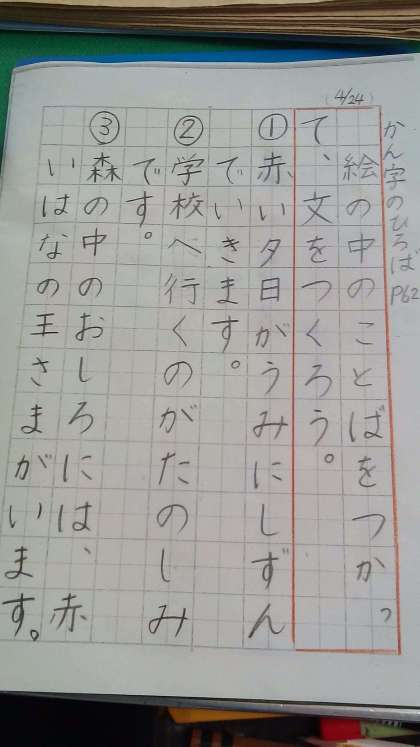 (4/24)
かん字のひろば P62
絵の中のことばをつかっ
て、文をつくろう。
① 赤い夕日がうみにしずん
でいきます。
② 学校へ行くのがたのしみ
です。
③ 森の中のおしろには、赤
いはなの王さまがいます。